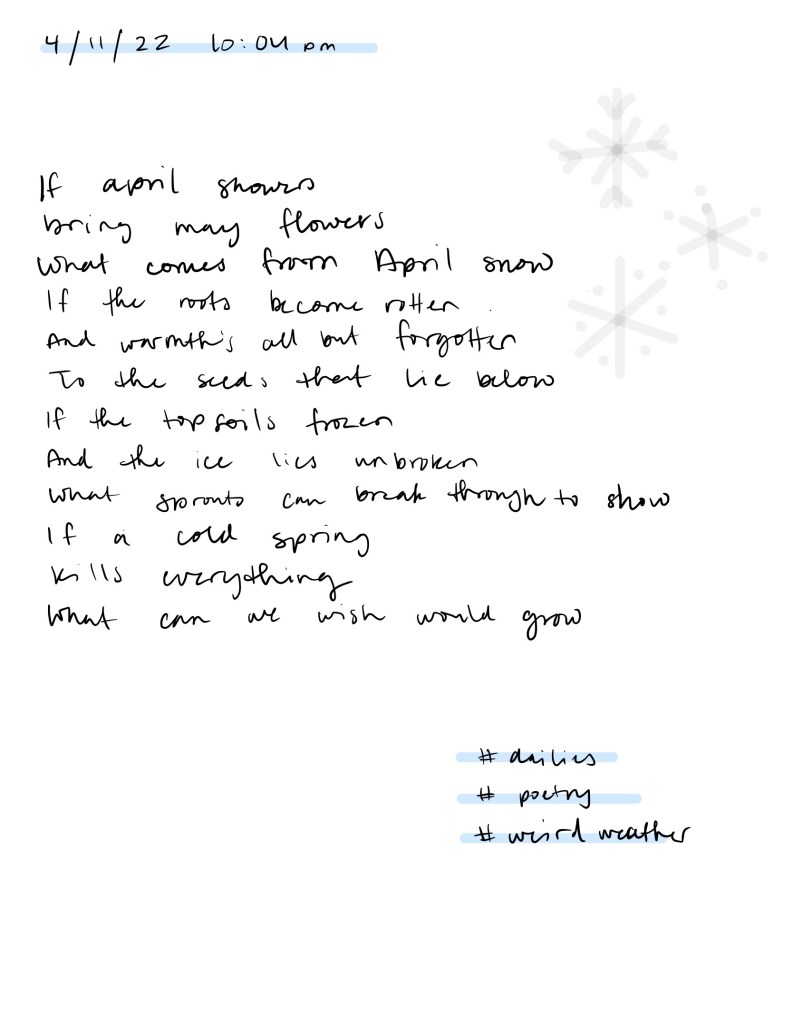 4/11/22 10:04 pm
If april showrs
bring may flowers
What comes from April snow
If the roots become rotten
And warmth's all but forgotten
To the seeds that lie below
If the topsoils frozen
And the ice lies unbroken
What sprouts can break through to show
If a cold spring
Kills everything
What can we wish would grow
# dailies
# poetry
# weird weather